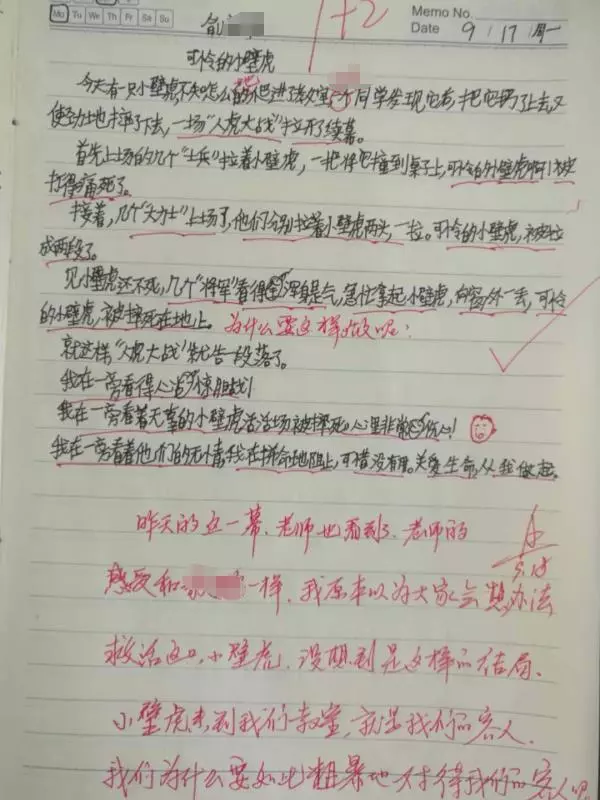 Mo Tu We Th Fr Sa Su
Memo No.
1+2
Date 9/17/周一
可怜的小壁虎
今天有一只小壁虎不知怎么的爬进了教室 个同学发现它后,把它扔了上去,又
使劲地摔了下去,一场“人虎大战”拉开了序幕。
首先上场的几个“士兵”拉着小壁虎,一把将它撞到桌子上,可怜的小壁虎啊!被
打得痛死了。
接着,几个“大力士”上场了,他们分别拉着小壁虎两头,一拉。可怜的小壁虎,被拉
成两段了。
见小壁虎还不死,几个“将军”看得浑身是气,急忙拿起小壁虎,向窗外一丢,可怜
的小壁虎,被摔死在地上。为什么要这样做呢?
就这样,“人虎大战”就告一段落了。
我在一旁看得心惊胆战!
我在一旁看着无辜的小壁虎活活场被摔死,心里非常伤心!
我在一旁看着他们的无情,我在拼命地阻止,可惜没有用。关爱生命,从我做起。
昨天的这一幕,老师也看到了,老师的
感受和 一样,我原本以为大家会想办法
救活这只小壁虎,没想到是这样的结局。
小壁虎来到我们教室,就是我们的客人。
我们为什么要如此粗暴地对待我们的客人呢